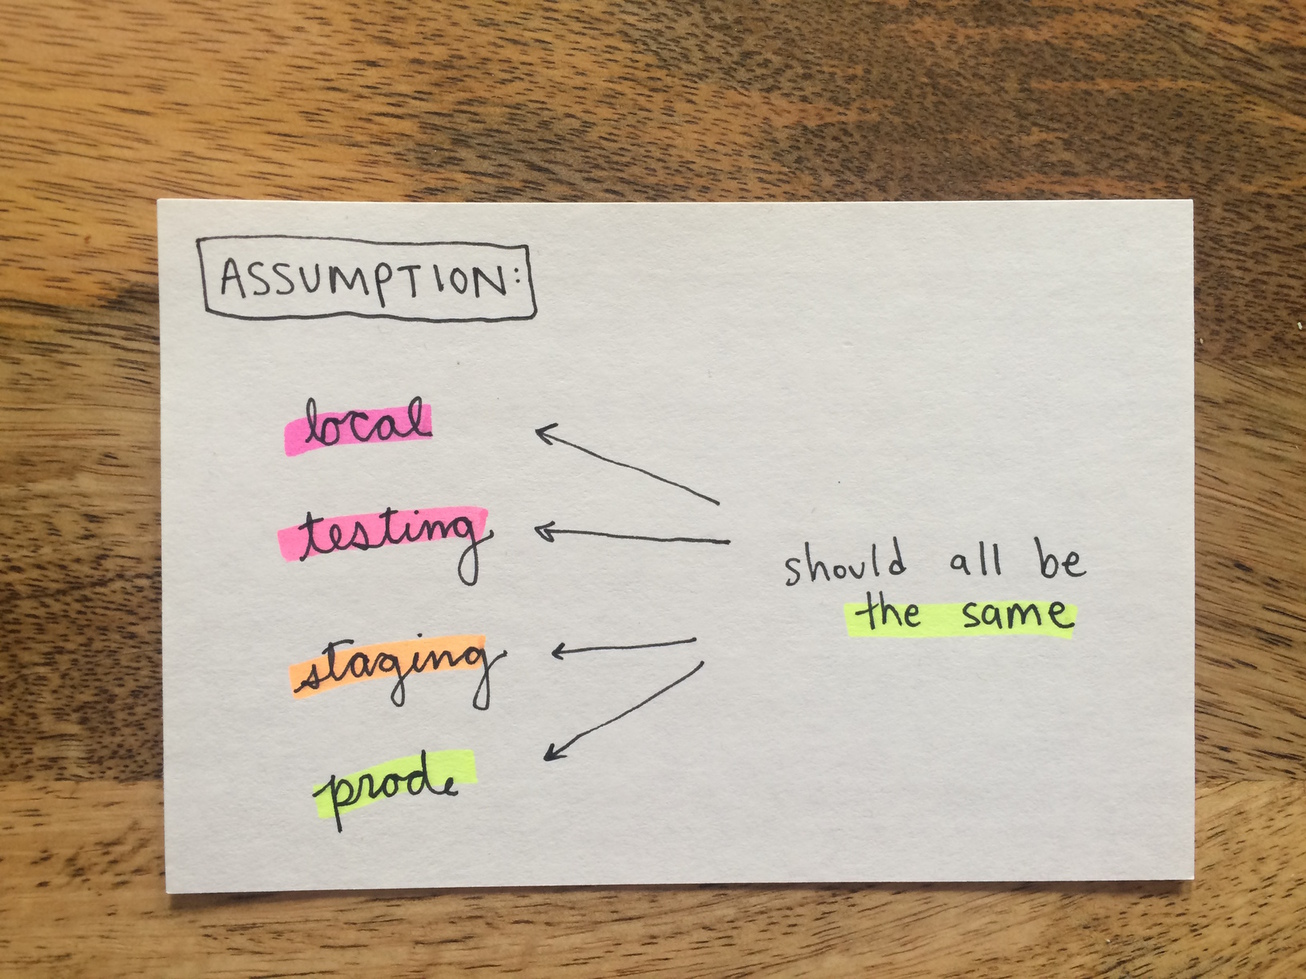 ASSUMPTION:
local
testing
staging
prod.
should all be
the same